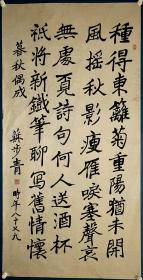 種得東籬菊重陽猶未開
風搖秋影瘦雁唳塞聲哀
無處覓詩句何人送酒杯
祇將新鐵筆聊寫舊情懷
暮秋偶成
蘇步青時年八十又九